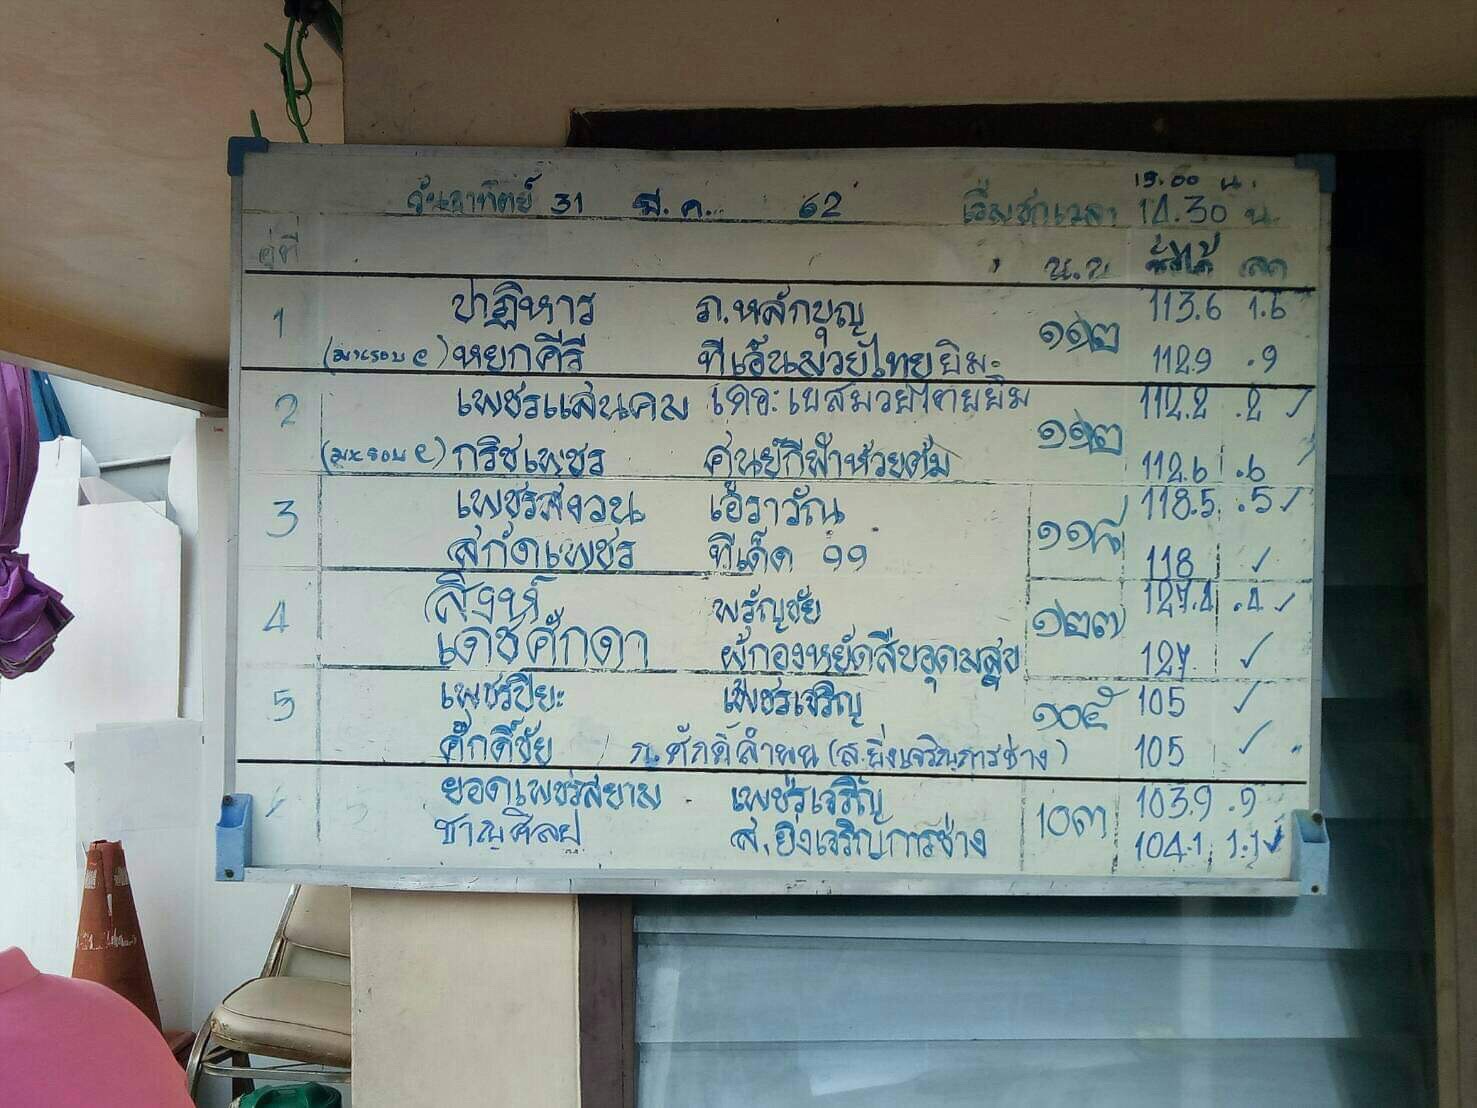 15.00 น.
วันอาทิตย์ 31 มี.ค. 62 เริ่มชกเวลา 14.30 น.
คู่ที่ น.น ชั่งได้ ลด
1 ปาฏิหาร ภ.หลักบุญ ๑๑๒ 113.6 1.6
(มหรอบ ๔) หยกคีรี ทีเอ็นมวยไทยยิม 112.9 .9
2 เพชรแสนคม เดอะเบสมวยไทยยิม ๑๑๒ 112.2 .2 ✓
(มหรอบ ๔) กริชเพชร ศูนย์กีฬาห้วยต้ม 112.6 .6
3 เพชรสงวน เอราวัณ ๑๑๘ 118.5 .5 ✓
สกัดเพชร ทีเด็ด 99 118 ✓
4 สิงห์ พรัญชัย ๑๒๗ 127.4 .4 ✓
เดชศักดา ผู้กองหยัดสืบอุดมสุข 127. ✓
5 เพชรปิยะ เพชรเจริญ ๑๐๕ 105 ✓
ศักดิ์ชัย ภ.ศักดิ์ลำพูน (ส.ยิ่งเจริญการช่าง) 105 ✓
ยอดเพชรสยาม เพชรเจริญ 10๓ 103.9 .9
ชาญศิลป ส.ยิ่งเจริญการช่าง 104.1 1.1 ✓